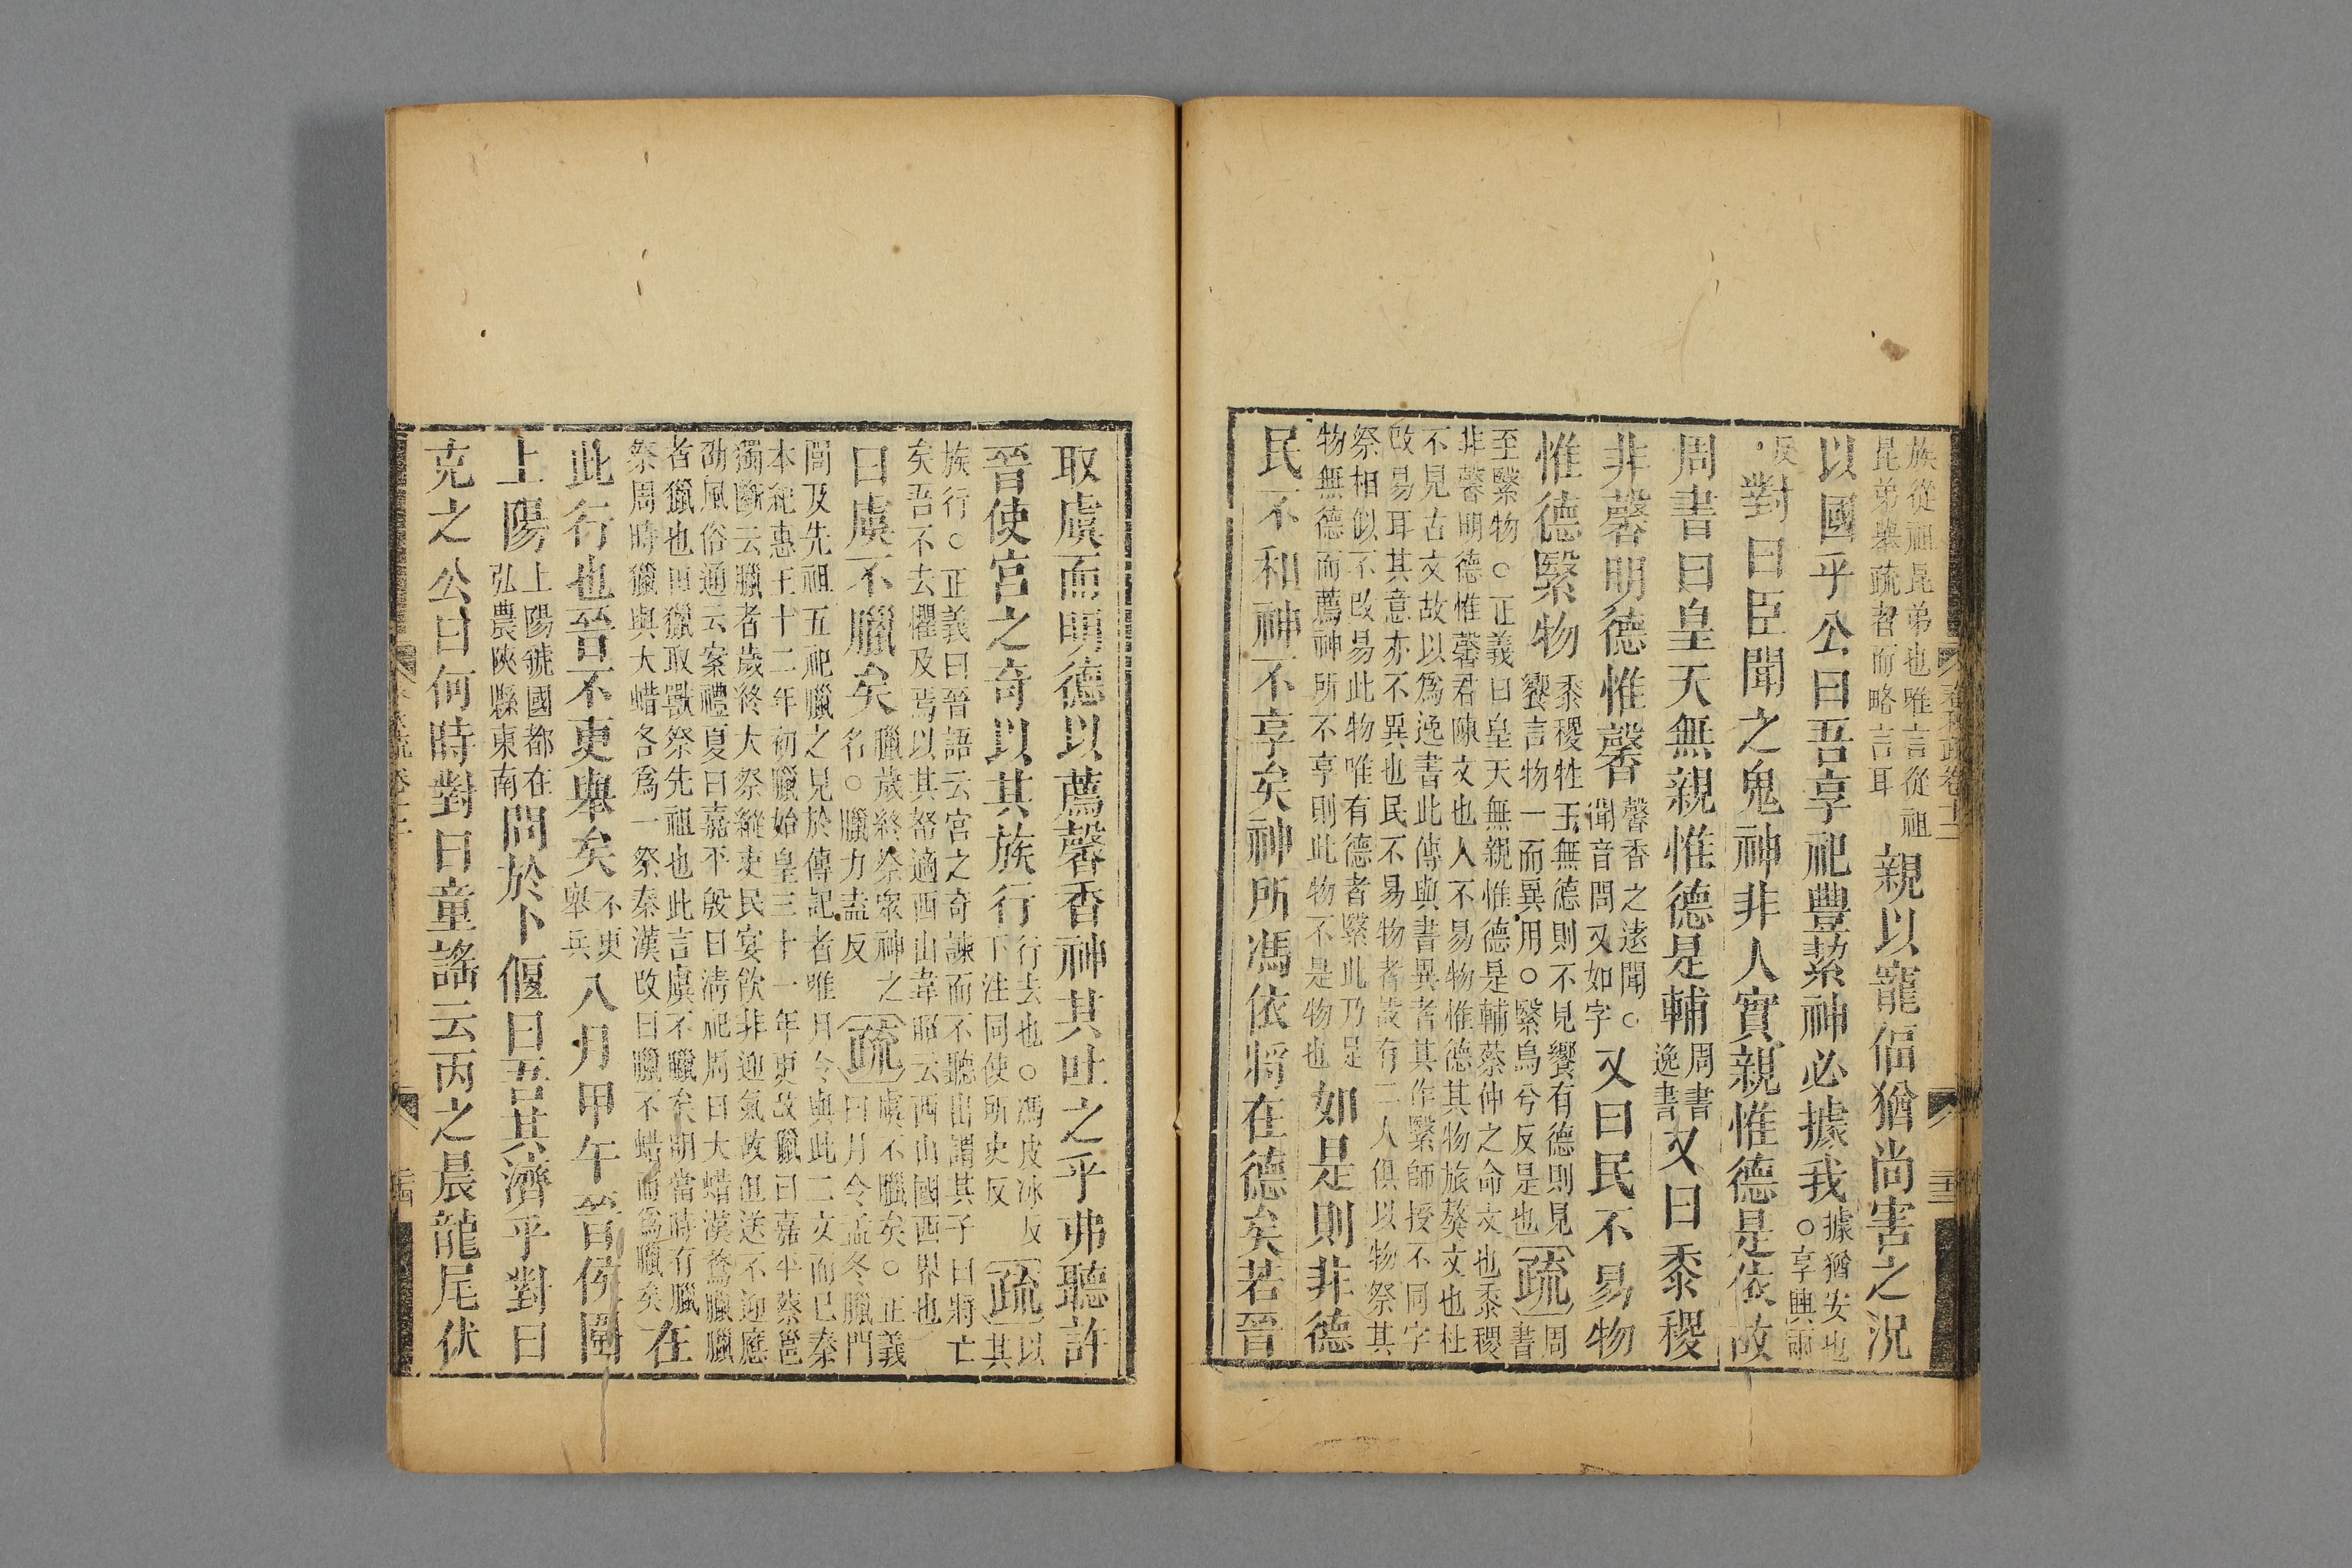 族從祖昆弟也唯言從祖
昆弟舉疏者而略言耳
親以寵偪猶尚害之況
以國乎公曰吾享祀豐絜神必據我
據猶安也
○享興兩
反
對曰臣聞之鬼神非人實親惟德是依故
周書曰皇天無親惟德是輔
周書
逸書
又曰黍稷
非馨明德惟馨
馨香之遠聞○
聞音問又如字
又曰民不易物
惟德繄物
黍稷牲玉無德則不見饗有德則見
饗言物一而異用○繄烏兮反是也
疏
周
書
至繄物○正義曰皇天無親惟德是輔蔡仲之命文也黍稷
非馨明德惟馨君陳文也人不易物惟德其物旅獒文也杜
不見古文故以爲逸書此傳與書異者其作繄師授不同字
改易耳其意亦不異也民不易物者設有二人俱以物祭其
祭相似不改易此物唯有德者繄此乃是
物無德而薦神所不享則此物不是物也
如是則非德
民不和神不享矣神所馮依將在德矣若晉
取虞而明德以薦馨香神其吐之乎弗聽許
晉使宮之奇以其族行
行去也○馮皮冰反
下注同使所吏反
疏
以
其
族行○正義曰晉語云宮之奇諫而不聽出謂其子曰將亡
矣吾不去懼及焉以其帑適西山韋昭云西山國西界也
曰虞不臘矣
臘歲終祭衆神之
名○臘力盍反
疏
虞不臘矣○正義
曰月令孟冬臘門
閭及先祖五祀臘之見於傳記者唯月令與此二文而已秦
本紀惠王十二年初臘始皇三十一年更改臘曰嘉平蔡邕
獨斷云臘者歲終大祭縱吏民宴飲非迎氣故但送不迎應
劭風俗通云案禮夏曰嘉平殷曰淸祀周曰大蜡漢改爲臘臘
者獵也田獵取獸祭先祖也此言虞不臘矣明當時有臘
祭周時獵與大蜡各爲一祭秦漢改曰臘不蜡而爲臘矣
在
此行也晉不更舉矣
不更
舉兵
八月甲午晉侯圍
上陽
上陽虢國都在
弘農陝縣東南
問於卜偃曰吾其濟乎對曰
克之公曰何時對曰童謠云丙之晨龍尾伏